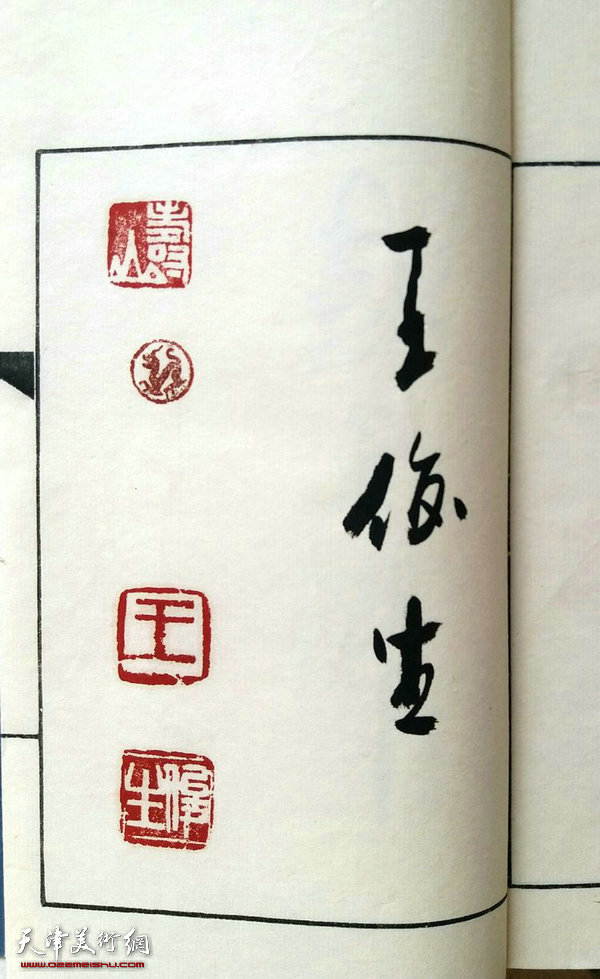 王俊生
壽山
王
俊生
天津美術網
www.022meishu.com